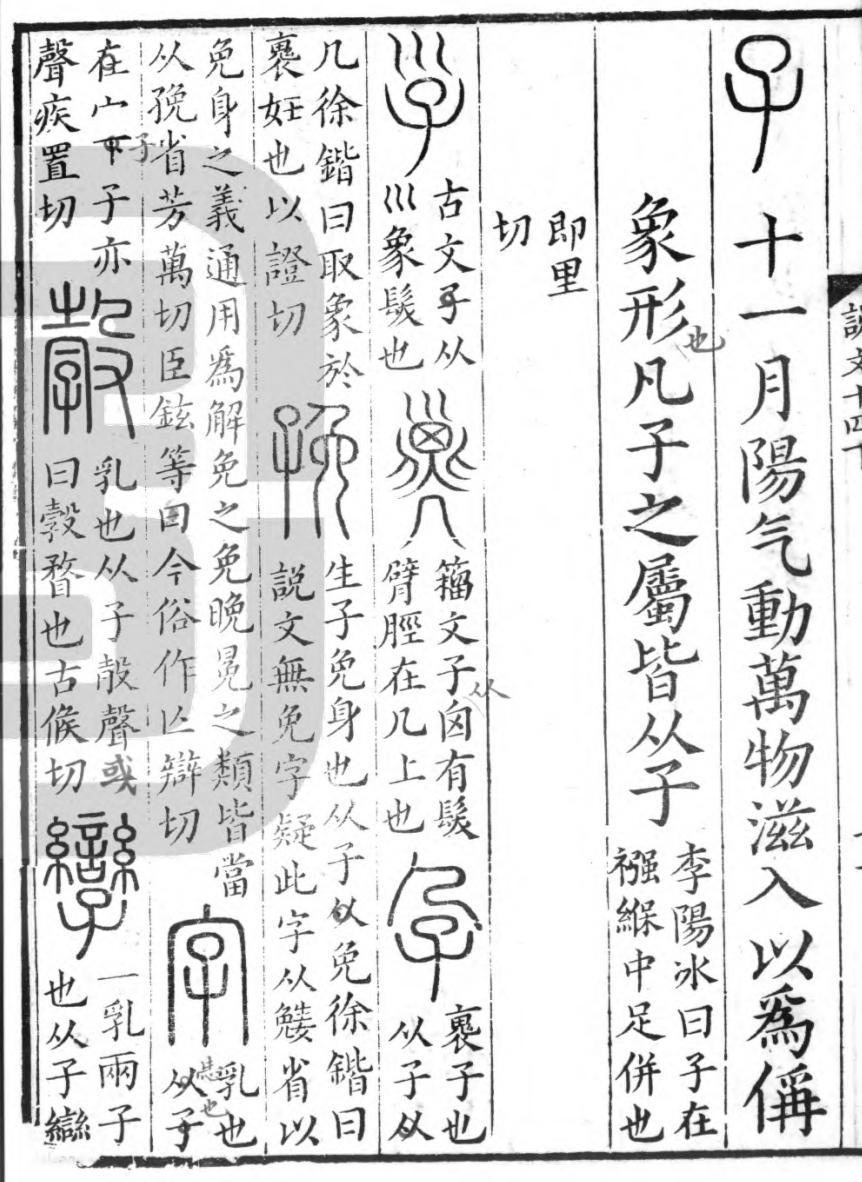 説文十四下
子 十一月陽气動萬物滋入以爲偁
象形凡子之屬皆从子
也
李陽冰曰子在
襁緥中足併也
即里
切
㜽
古文子从
巛象髮也
籒文子囟有髮
臂脛在几上也
从
孕
裹子也
从子从
几徐鍇曰取象於
裹妊也以證切
㝃
生子免身也从子从免徐鍇曰
說文無免字疑此字从省以
免身之義通用爲解免之免晚冕之類皆當
从㝃省芳萬切臣鉉等曰今俗作亾辯切
字
乳也
从子
也
在宀下子亦
聲疾置切
子
㝅
乳也从子㱿聲或
曰㝅瞀也古候切
孿
一乳兩子
也从子䜌